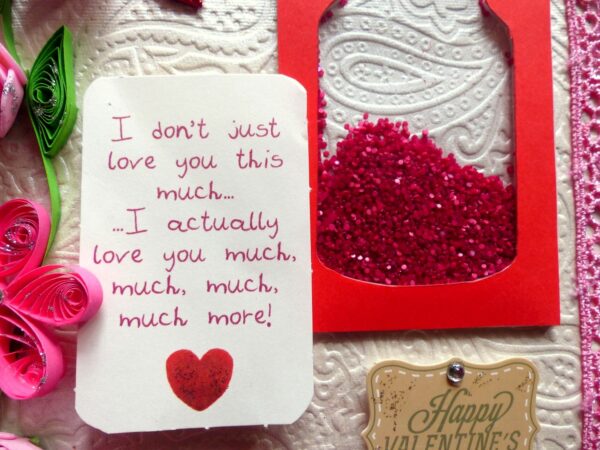 I don't just
love you this
much...
...I actually
love you much,
much, much,
much more!
Happy
VALENTINE'S